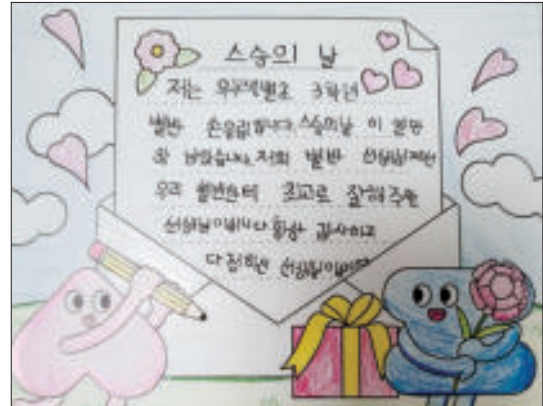 스승의 날
저는 3학년
별반 손유림입니다. 스승의날 이
남았습니다. 저희 별반 선생님께선
우리 별반한테 최고로 잘해주는
선생님이십니다 항상 감사하고
다 선생님이